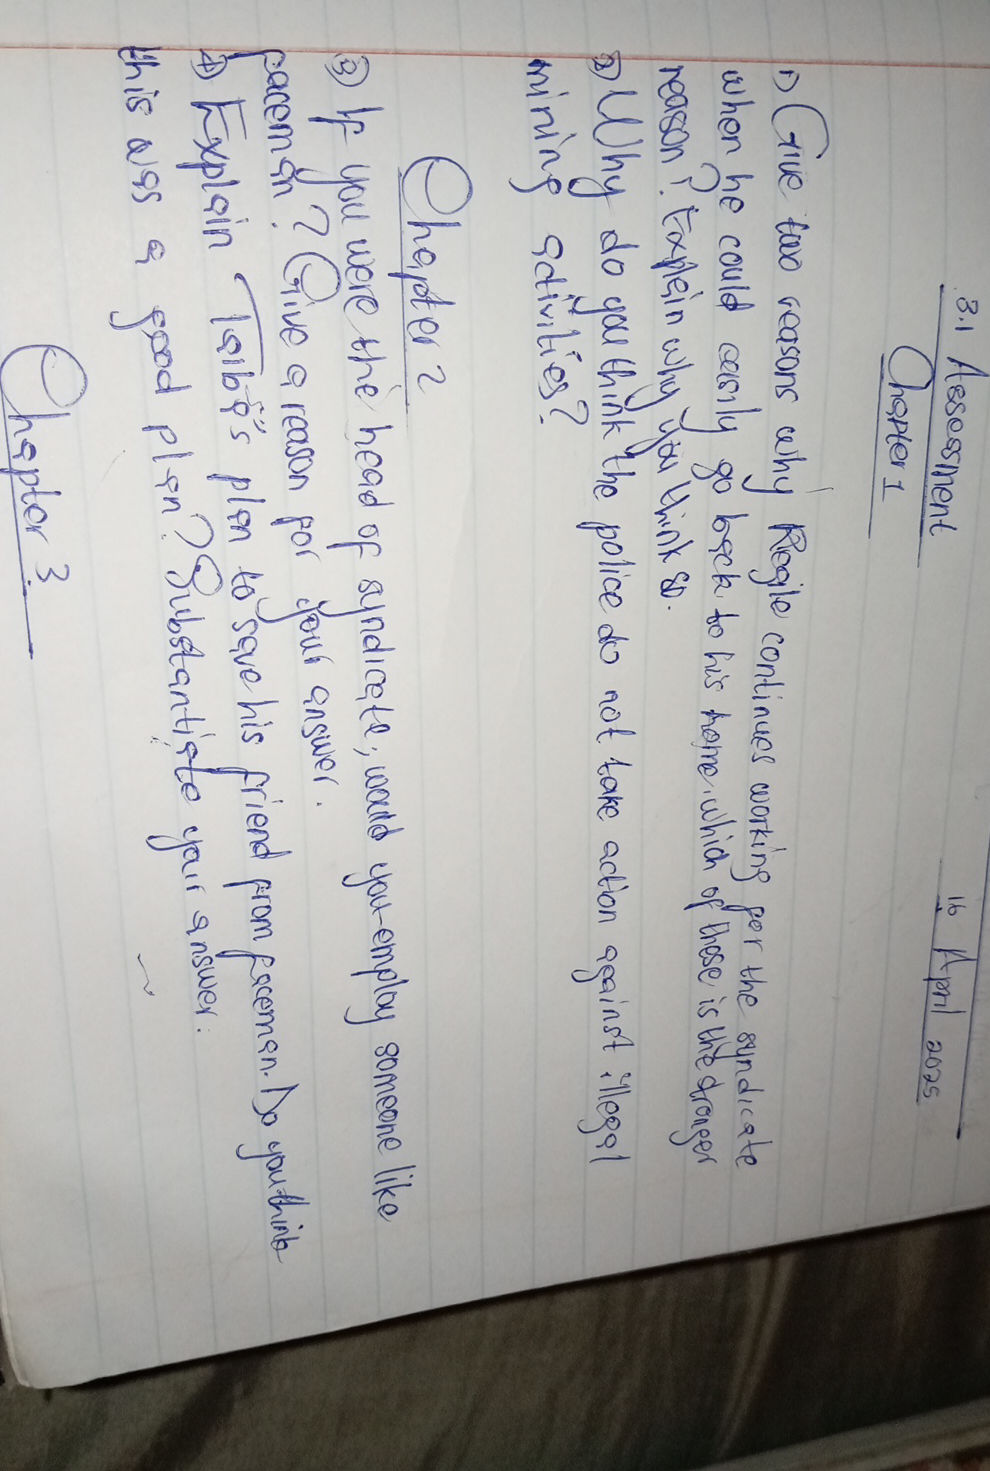 3.1 Assessment 16 April 2025
Chapter 1
1) Give two reasons why Regile continues working for the syndicate
when he could easily go back to his home. which of these is the stronger
reason? Explain why you think so.
2) Why do you think the police do not take action against illegal
mining activities?
Chapter 2
3) If you were the head of syndicate, would you employ someone like
faceman? Give a reason for your answer.
4) Explain Taibo's plan to save his friend from faceman. Do you think
this was a good plan? Substantiate your answer.
Chapter 3